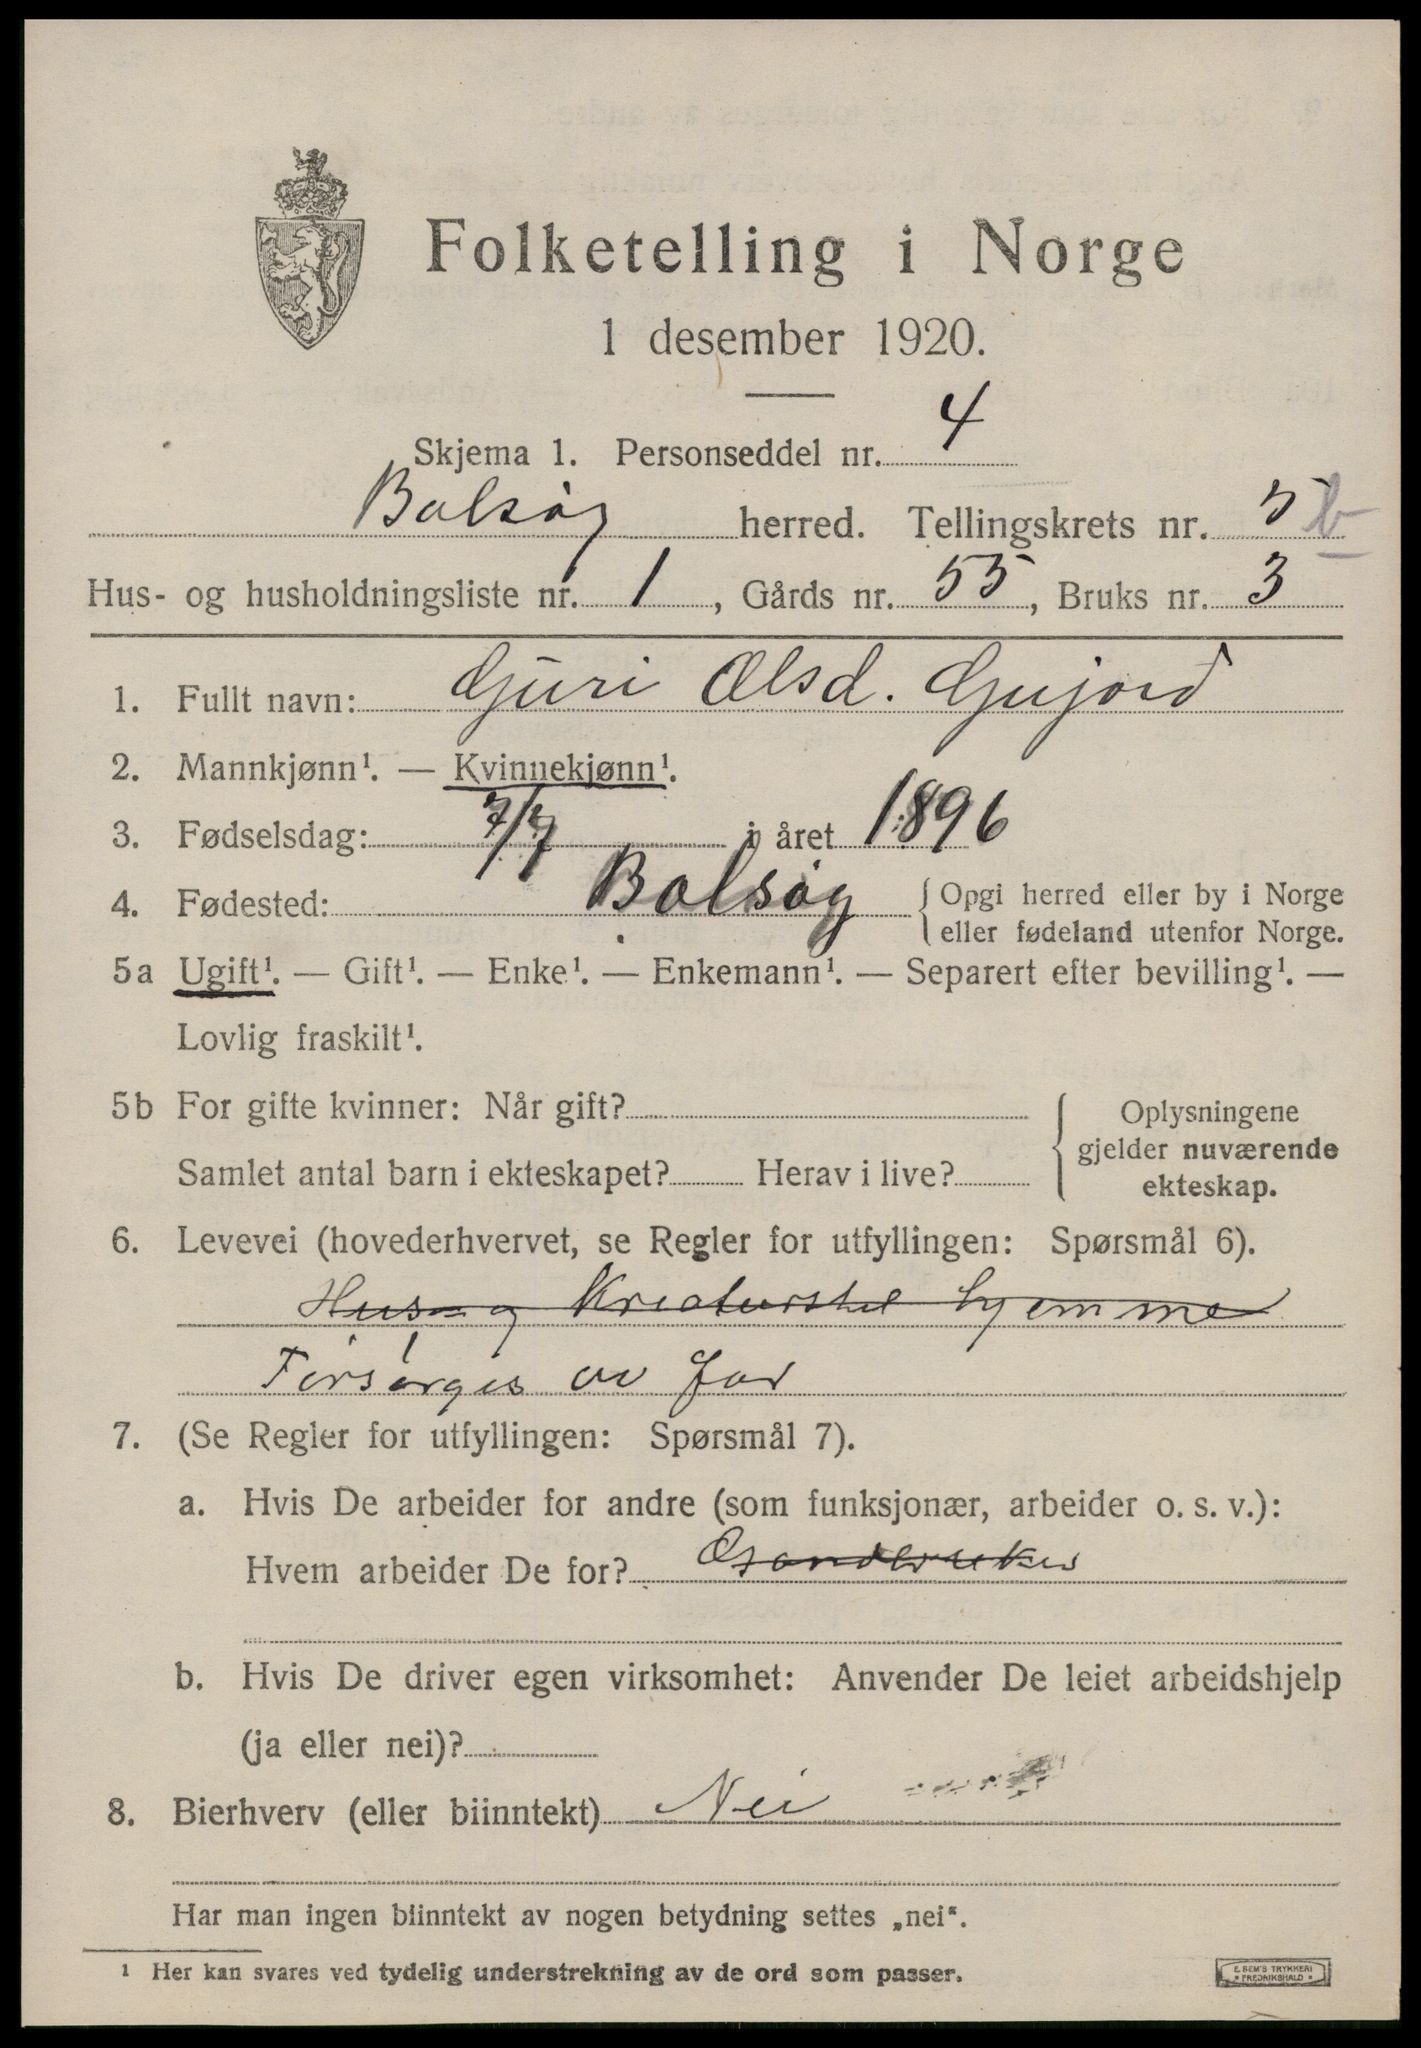 Folketelling i Norge
1 desember 1920.
Skjema 1. Personseddel nr. 4
Bolsøy herred. Tellingskrets nr. 5 b
Hus- og husholdningsliste nr. 1, Gårds nr. 55, Bruks nr. 3
1. Fullt navn: Guri Olsd. Gujord
2. Mannkjønn¹. — Kvinnekjønn¹.
3. Fødselsdag: 7/7 i året 1896
4. Fødested: Bolsøy { Opgi herred eller by i Norge
eller fødeland utenfor Norge.
5a Ugift¹. — Gift¹. — Enke¹. — Enkemann¹. — Separert efter bevilling¹. —
Lovlig fraskilt¹.
5b For gifte kvinner: Når gift?
Samlet antal barn i ekteskapet? Herav i live?
Oplysningene
gjelder nuværende
ekteskap.
6. Levevei (hovederhvervet, se Regler for utfyllingen: Spørsmål 6).
Hus- og Kreaturstel hjemme
Forsørges av far
7. (Se Regler for utfyllingen: Spørsmål 7).
a. Hvis De arbeider for andre (som funksjonær, arbeider o. s. v.):
Hvem arbeider De for? Gardbruker
b. Hvis De driver egen virksomhet: Anvender De leiet arbeidshjelp
(ja eller nei)?
8. Bierhverv (eller biinntekt) Nei
Har man ingen biinntekt av nogen betydning settes „nei“.
¹ Her kan svares ved tydelig understrekning av de ord som passer.
E. SEM'S TRYKKERI
FREDRIKSHALD